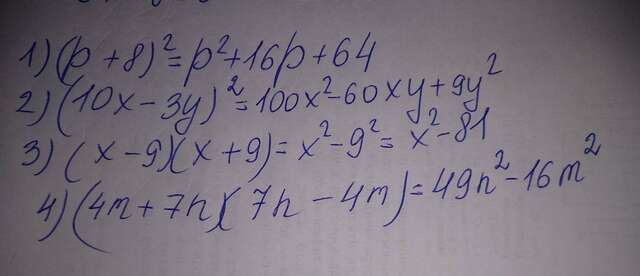 1) (p + 8)² = p² + 16p + 64
2) (10x - 3y)² = 100x² - 60xy + 9y²
3) (x - 9)(x + 9) = x² - 9² = x² - 81
4) (4m + 7n)(7n - 4m) = 49n² - 16m²